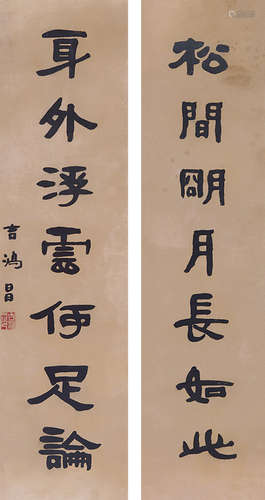 松間朙月長如此
耳外浮雲何足論
吉鴻昌